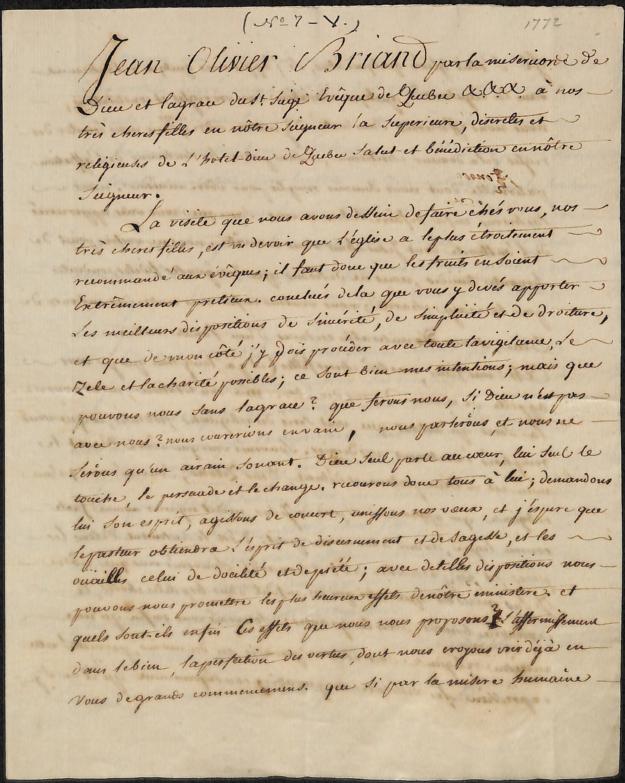 (No 7 - V.)
1772
Jean Olivier Briand par la misericorde de
Dieu et la grace du St. Siege Evêque de Quebec &.&.&. à nos
très cheres filles en nôtre Seigneur la Superieure, discretes et
religieuses de L'hotel-dieu de Quebec Salut et bénédiction en nôtre
Seigneur.
La visite que nous avons dessein de faire chés vous, nos
très cheres filles, est un devoir que L'église a le plus étroitement
recommandé aux evêques; il faut donc que les fruits en soient
Extrêmement pretieux. concluès de la que vous y devés apporter
Les meilleurs dispositions de sincérité, de simplicité et de droiture,
et que de mon côté j'y dois procéder avec toute la vigilance, Le
Zele et la charité possibles; ce sont bien mes intentions; mais que
pouvons nous sans la grace? que ferons nous, Si Dieu n'est pas
avec nous? nous courerions en vain, nous parlerons, et nous ne
serons qu'un airain sonant. Dieu seul parle au cœur, lui seul le
touche, le persuade et le change. recourons donc tous à lui; demandons
lui son esprit, agissons de concert, unissons nos vœux, et j'espere que
le pasteur obtiendra L'esprit de discernement et de sagesse, et les
ouailles celui de docilité et de piété; avec de telles dispositions nous
pouvons nous promettre les plus heureux effets de nôtre ministère. et
quels sont-ils enfin Ces effets que nous nous proposons? L'affermissement
dans le bien, la perfection des vertus, dont nous croyons voir déjà en
Vous de grands commencemens. que si par la misere humaine